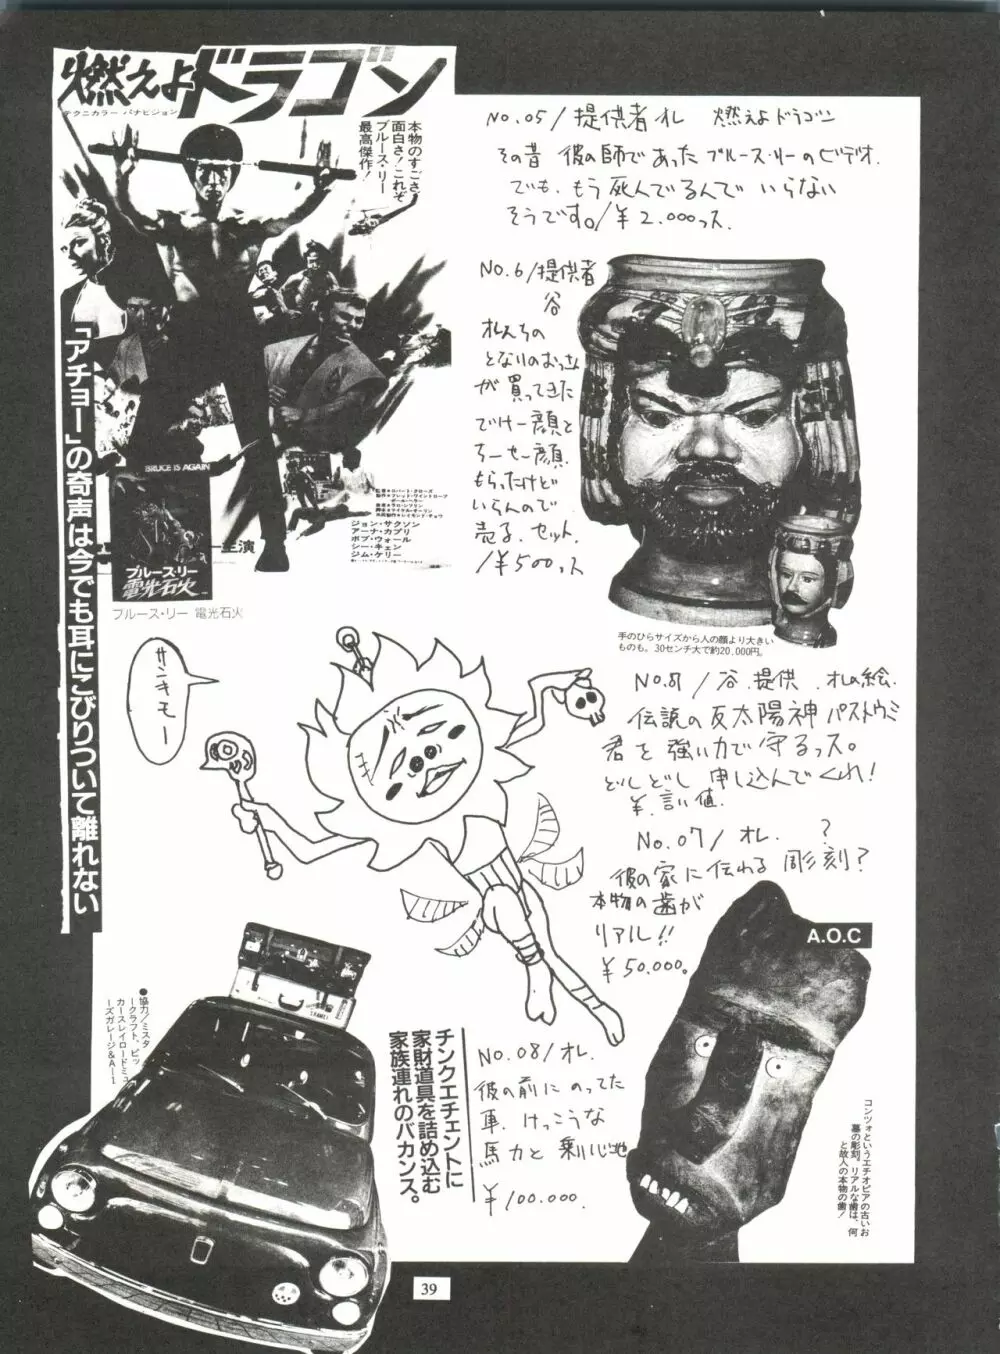 燃えよドラゴン
テクニカラー パナビジョン
本物のすごさ
面白さ!これぞ
ブルース・リー
最高傑作!
「アチョー」の奇声は今でも耳にこびりついて離れない
BRUCE IS AGAIN
ブルース・リー
電光石火
主演
監督●ロバート・クローズ
ジョン・サクソン
アーナ・カプリ
ボブ・ウォール
シー・キェン
ジム・ケリー
ブルース・リー 電光石火
No.05/提供者オレ 燃えよドラゴン
その昔 彼の師であったブルース・リーのビデオ.
でも、もう死んでるんで いらない
そうです。/¥2.000っス.
No.6/提供者
谷
オレんちの
となりのおっさん
が買ってきた
でけー顔と
ちーせー顔.
もらったけど
いらんので
売る.セット.
/¥500っス
手のひらサイズから人の顔より大きい
ものも。30センチ大で約20,000円。
サンキモー
谷.提供 .オレの絵.
伝説の反太陽神 パストウミ
君を強い力で守るっス。
どしどし申し込んでくれ!
¥.言い値.
No.07/オレ. ?
彼の家に伝わる彫刻?
本物の歯が
リアル!!
¥50.000。
A.O.C
コンツォというエチオピアの古いお
墓の彫刻。リアルな歯は、何
と故人の本物の歯!
No.08/オレ.
彼の前にのってた
車.けっこうな
馬力と乗り心地
¥100.000.
チンクエチェントに
家財道具を詰め込む
家族連れのバカンス。
●協力/ミスタ
ークラフト、ビッ
カースレイロードミュ
ーズガレージ&A−1
39